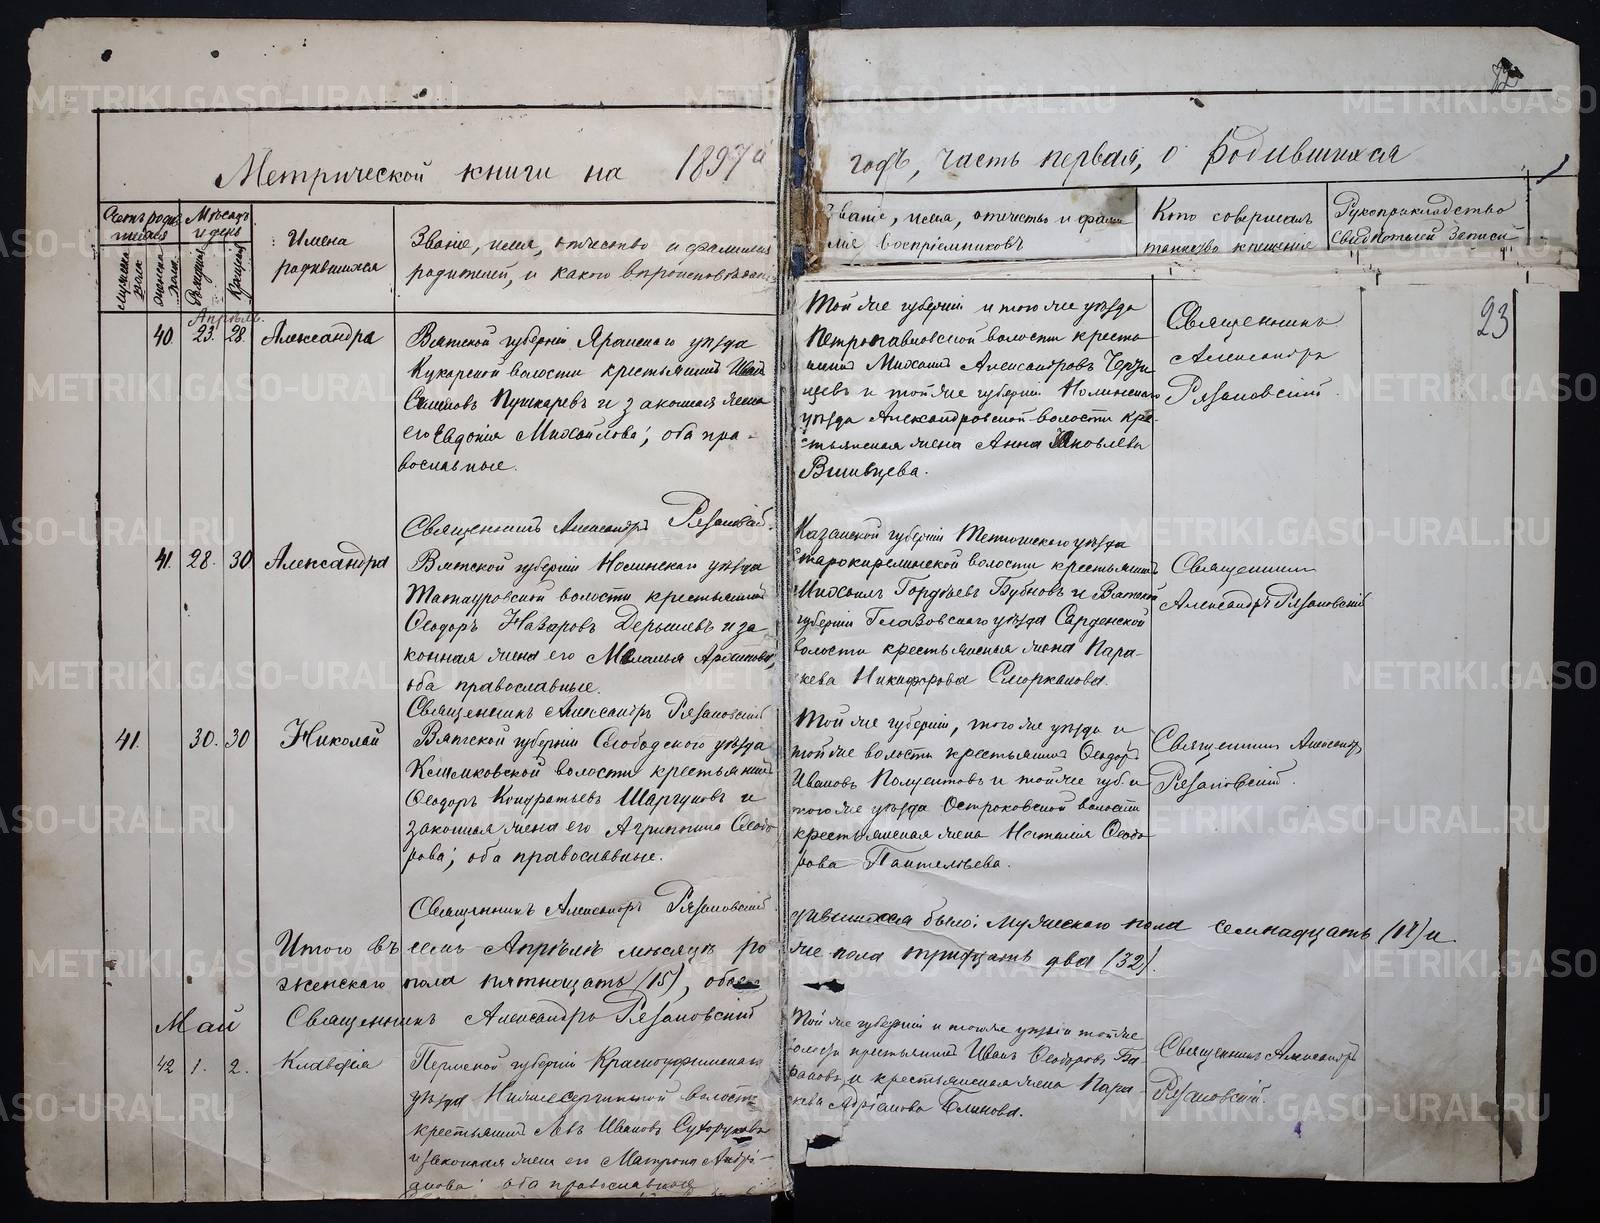 23
Метрической книги на 1897й годъ, часть первая, о родившихся
Счетъ родившихся
Мѣсяцъ и день
мужеска пола
женска пола
Рожденія
Крещенія
Имена
родившихся
Званіе, имя, отчество и фамилія
родителей, и какого вѣроисповѣданія
Званіе, имя, отчество и фами
лія воспріемниковъ
Кто совершалъ
таинство крещенія
Рукоприкладство
свидѣтелей записи
Апрѣль.
40. 23. 28. Александра
Вятской губерніи Яранскаго уѣзда
Кукарской волости крестьянинъ Иванъ
Пушкаревъ и законная жена
его Евдокія Михайлова; оба пра-
вославные.
Священникъ Александръ Рязановскій.
Той же губерніи и того же уѣзда
Петропавловской волости кресть
янинъ Михаилъ Александровъ
и той же губерніи Нолинскаго
уѣзда Александровской волости кре-
стьянская жена Анна Яковлева
Вшивцева.
Священникъ
Александръ
Рязановскій.
23
41. 28. 30 Александра
Вятской губерніи Нолинскаго уѣзда
Татауровской волости крестьянинъ
Ѳеодоръ Назаровъ Дерышевъ и за
конная жена его Меланья Архипова,
оба православные.
Священникъ Александръ Рязановскій
Казанской губерніи Тетюшскаго уѣзда
волости крестьянинъ
Михаилъ Гордѣевъ Бубновъ и Вятской
губерніи Глазовскаго уѣзда Сарденской
волости крестьянская жена Пара-
скева Никифорова Сморкалова.
Священникъ
Александръ Рязановскій
41. 30. 30 Николай
Вятской губерніи Слободскаго уѣзда
волости крестьянинъ
Ѳеодоръ Кондратьевъ Шаргуновъ и
законная жена его Агрипина Ѳеодо
рова; оба православные.
Священникъ Александръ Рязановскій
Той же губерніи, того же уѣзда и
той же волости крестьянинъ Ѳеодоръ
Ивановъ и той же губ. и
того же уѣзда волости
крестьянская жена Наталія Ѳеодо
рова Пантелѣева.
Священникъ Александръ
Рязановскій.
Итого въ семъ Апрѣлѣ мѣсяцѣ ро дившихся было: мужескаго пола семнадцать (17) и
женскаго пола пятнадцать (15), обоего же пола тридцать два (32).
Священникъ Александръ Рязановскій
Май
42 1. 2. Клавдія
Пермской губерніи Красноуфимскаго
уѣзда Нижнесергинской волости
крестьянинъ Левъ Ивановъ Сухоруковъ
и законная жена его Матрона Андрі-
анова оба православные
Той же губерніи и того же уѣзда и той же
волости крестьянинъ Иванъ Ѳеодоровъ Ба
рановъ и крестьянская жена Пара-
скева Адріанова Блинова.
Священникъ Александръ
Рязановскій.
METRIKI.GASO-URAL.RU